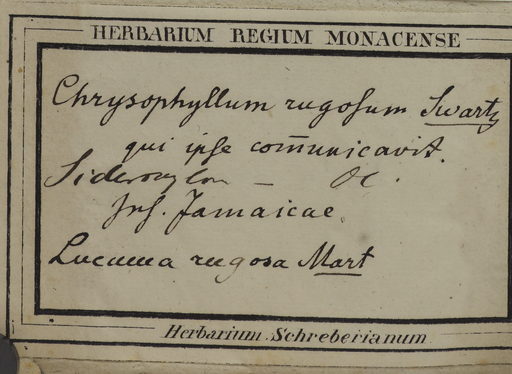 HERBARIUM REGIUM MONACENSE
Chrysophyllum rugosum Swartz
qui ipse com̄unicavit.
Sideroxylon —
Ins. Jamaicae.
Lucuma rugosa Mart
Herbarium Schreberianum